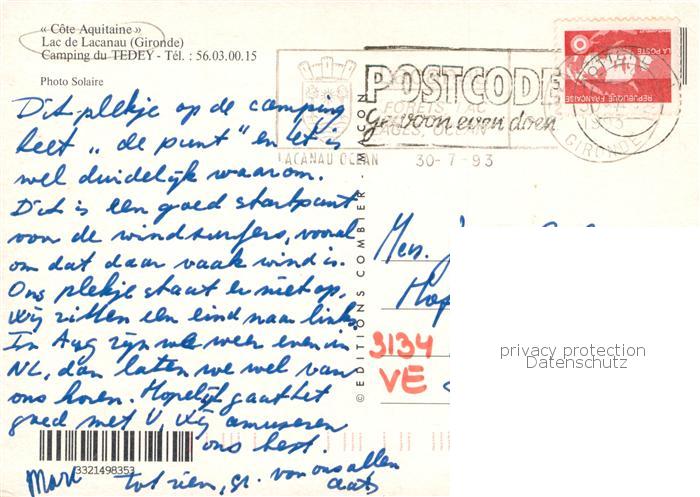 « Côte Aquitaine »
Lac de Lacanau (Gironde)
Camping du TEDEY - Tél. : 56.03.00.15
Photo Solaire
LA POSTE
REPUBLIQUE FRANÇAISE
POSTCODE
Gewoon even doen
FORETS LAC
PLAGES OCEAN
LACANAU OCEAN 30-7-93
GIRONDE
Dit plekje op de camping
heet "de punt" en het is
wel duidelijk waarom.
Dit is een goed startpunt
voor de windsurfers, vooral
om dat daar vaak wind is.
Ons plekje staat er niet op,
wij zitten een eind naar links
In Aug zijn we weer even in
NL, dan laten we wel van
ons horen. Hopelijk gaat het
goed met U, wij amuseren
ons best.
tot ziens, gr. van ons allen
Mark
© EDITIONS COMBIER - MACON
3134
VE
3321498353
privacy protection
Datenschutz